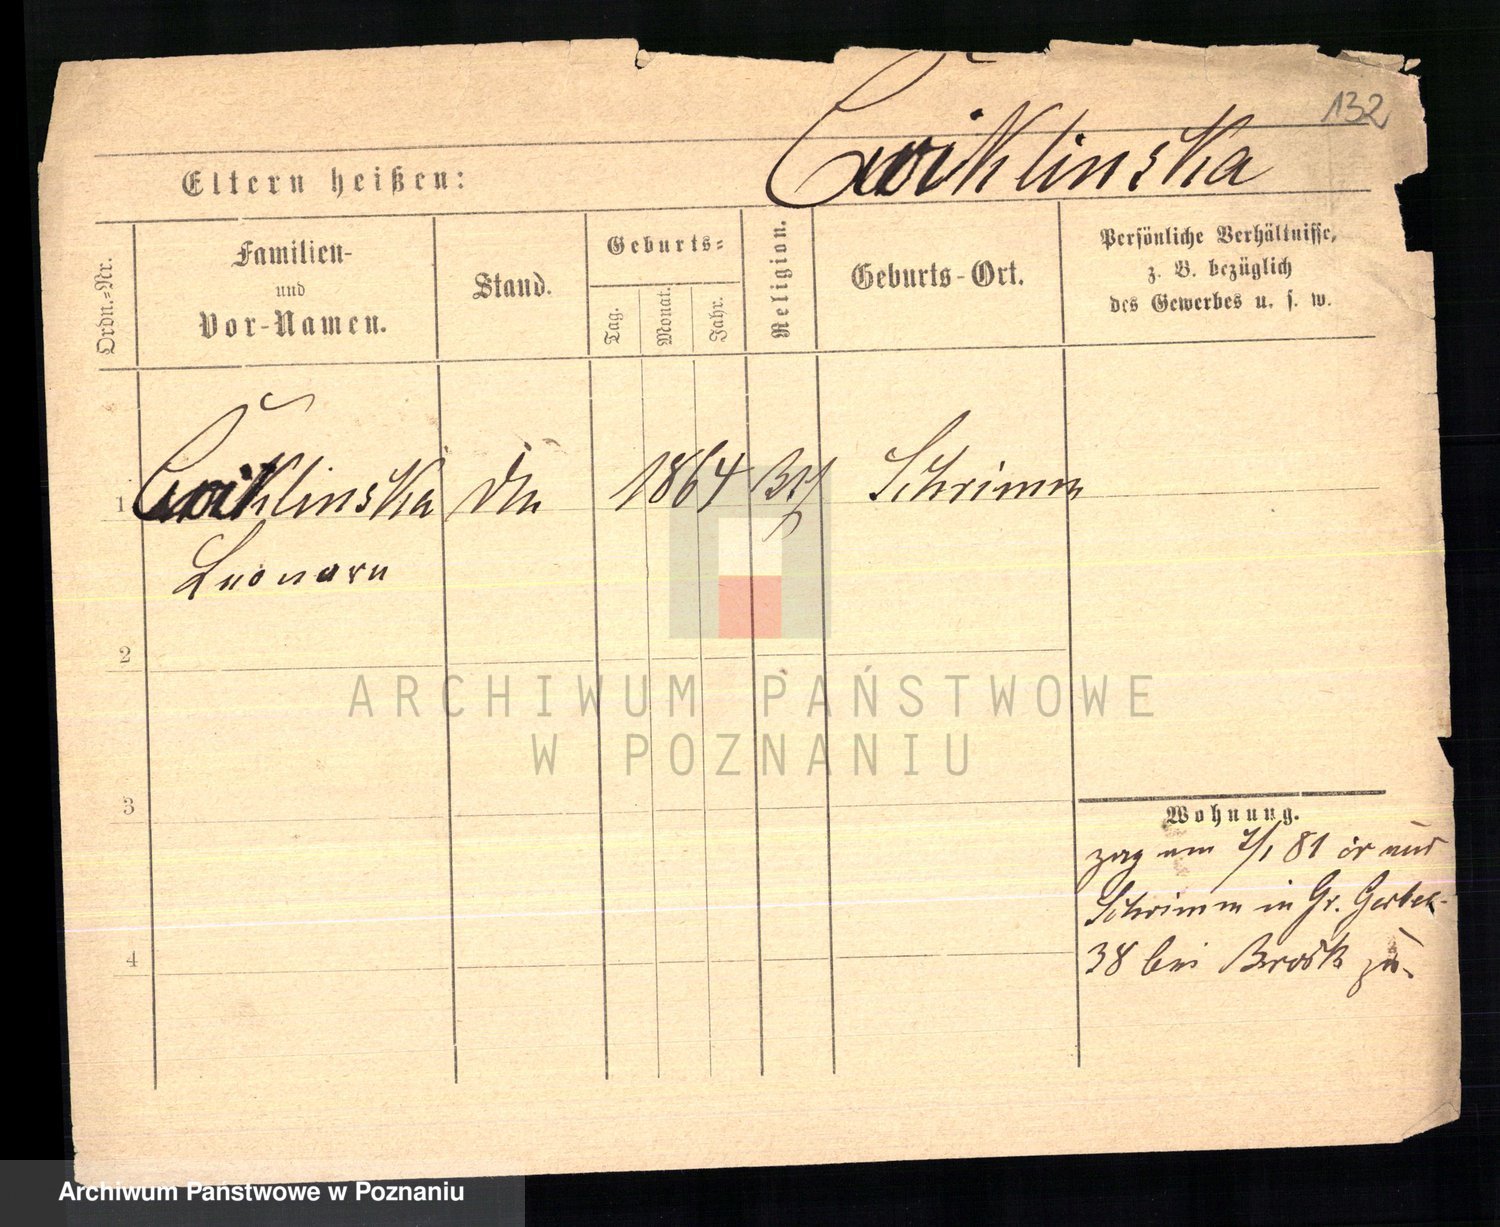 132
Cwiklinska
Eltern heißen:
Ordn.=Nr.
Familien-
und
Vor-Namen.
Stand.
Geburts=
Tag.
Monat.
Jahr.
Religion.
Geburts-Ort.
Persönliche Verhältnisse,
z. B. bezüglich
des Gewerbes u. s. w.
1
Cwiklinska
1864
Schrimm
Leonore
2
ARCHIWUM PAŃSTWOWE
W POZNANIU
3
Wohnung.
zog am 7/1 81 aus
Schrimm in Gr. Gerber-
4
38 bei zu.
Archiwum Państwowe w Poznaniu